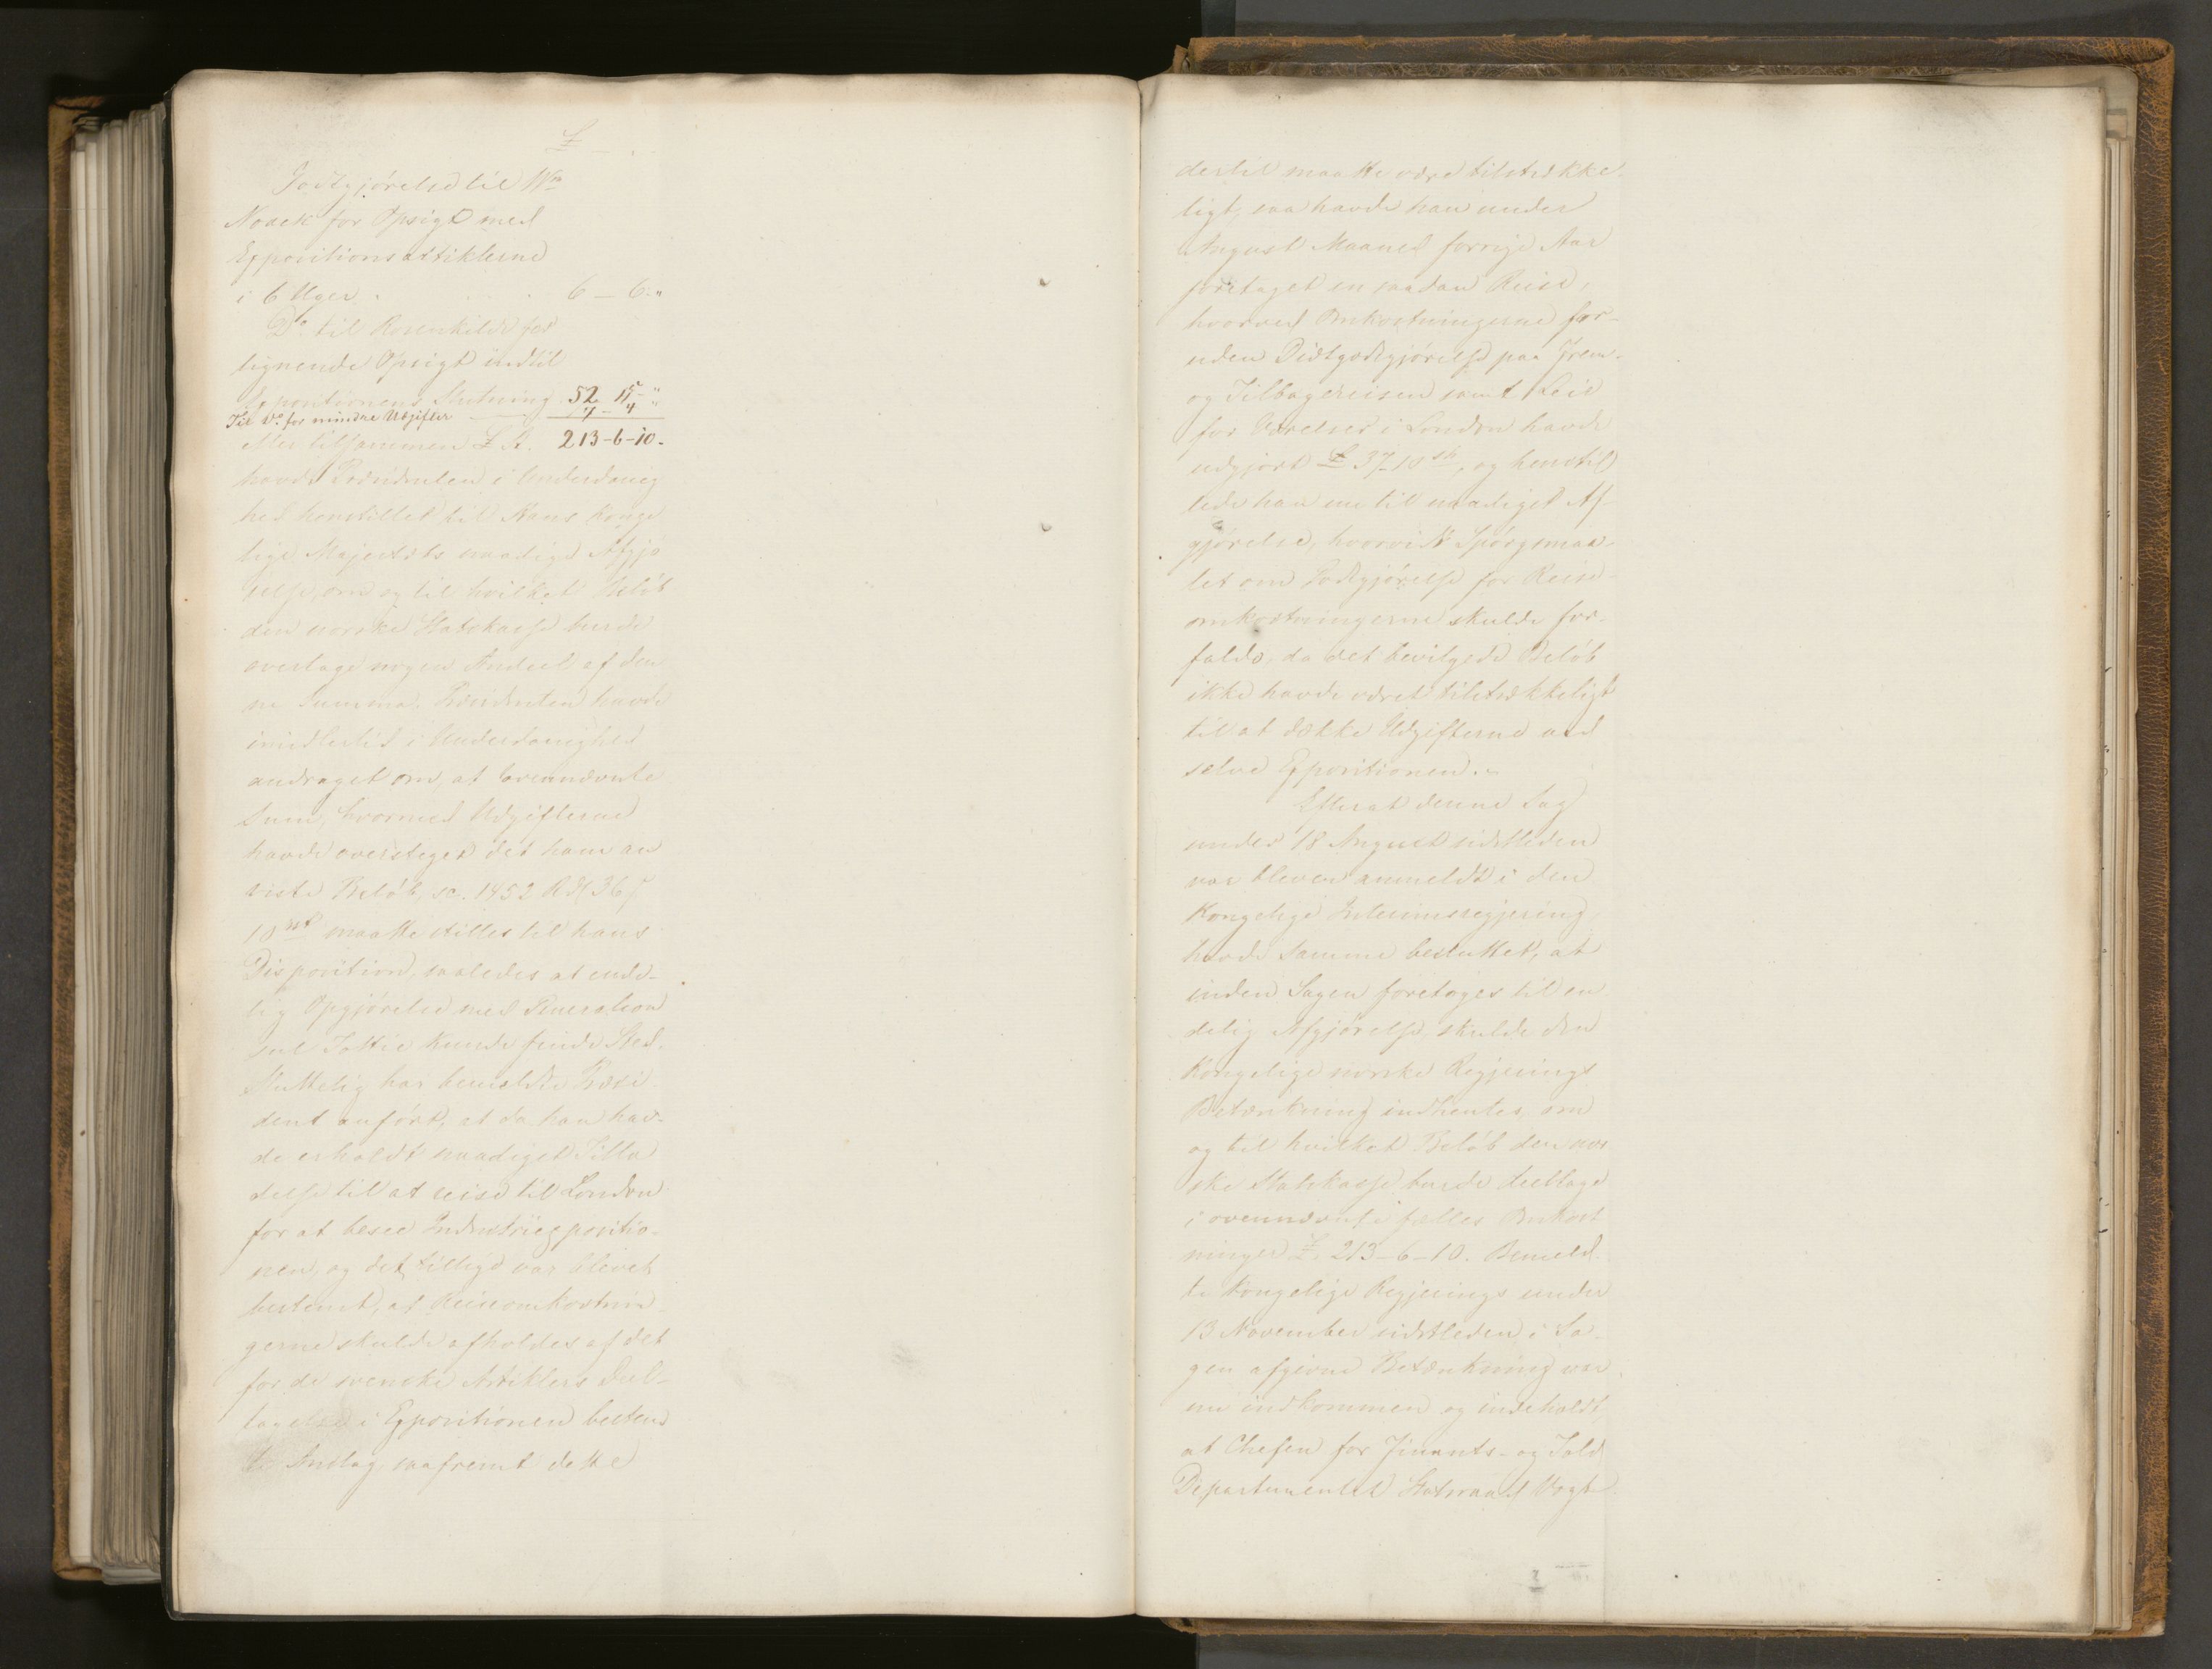 £
Godtgjörelse til Wm
Noack for Opsigt med
Expositionsartiklerne
i 6 Uger . 6 – 6 „
Do til Rosenkilde for
lignende Opsigt indtil
Expositionens Slutning 52. 15 „
Til Do for mindre Udgifter 7 – 4 „
eller tilsammen £ St. 213–6–10.
havde Præsidenten i Underdanig
hed henstillet til Hans Konge
lige Majestæts naadige Afgjö
relse, om og til hvilket Belöb
den norske Statskasse burde
overtage nogen Andeel af den
ne Summa. Præsidenten havde
imidlertid i Underdanighed
andraget om, at ovennævnte
Sum, hvormed Udgifterne
havde oversteget det ham an
viste Belöb, sc. 1452 Rd 36 s
10 rst maatte stilles til hans
Disposition, saaledes at ende-
lig Opgjörelse med Generalcon
sul Tottie kunde finde Sted.
Sluttelig har bemeldte Præsi-
dent anfört, at da han hav-
de erholdt naadigst Tilla
delse til at reise til London
for at besee Industriexpositio-
nen, og det tillige var blevet
bestemt, at Reiseomkostnin-
gerne skulde afholdes af det
for de svenske Artiklers Deel-
tagelse i Expositionen bestem
te Anslag, saafremt dette
dertil maatte være tilstrække-
ligt, saa havde han under
August Maaned forrige Aar
foretaget en saadan Reise,
hvorved Omkostningerne for-
uden Diætgodtgjörelse paa Frem-
og Tilbagereisen samt Leie
for Værelser i London havde
udgjort £ 37 10 sh, og henstil
lede han nu til naadigst Af
gjörelse, hvorvidt Spörgsmaa-
let om Godtgjörelse for Reise-
omkostningerne skulde for-
falde, da det bevilgede Belöb
ikke havde været tilstrækkeligt
til at dække Udgifterne ved
selve Expositionen.
Efterat denne Sag
under 18 August sidstleden
var bleven anmeldt i den
Kongelige Interimsregjering,
havde samme besluttet, at
inden Sagen foretoges til en
delig Afgjörelse, skulde den
Kongelige norske Regjerings
Betænkning indhentes, om
og til hvilket Belöb den nor
ske Statskasse burde deeltage
i ovennævnte fælles Omkost
ninger £. 213–6–10. Bemeld-
te Kongelige Regjerings under
13 November sidstleden i Sa-
gen afgivne Betænkning var
nu indkommen og indeholdt
at Chefen for Finants- og Told
Departementet Statsraad Vogt